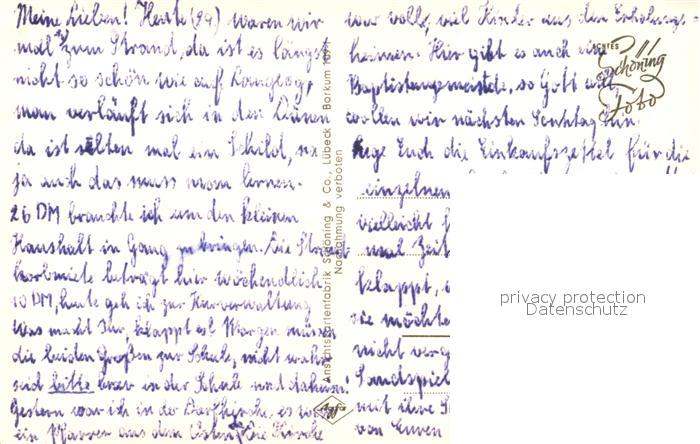 Meine Lieben! Heute (29) waren wir
mal zum Strand, da ist es längst
nicht so schön wie auf Langeoog,
man verläuft sich in den Dünen
da ist selten mal ein Schild, na
ja auch das muss man lernen.
26 DM brauchte ich um den kleinen
Haushalt in Gang zu bringen. Die Strand
korbmiete beträgt hier wöchendlich
10 DM, heute geh ich zur Kurverwaltung
Was macht Ihr, klappt es? Morgen müssen
die beiden Großen zur Schule, nicht wahr
seid bitte brav in der Schule und daheim!
Gestern war ich in der Dorfkirche, es war
ein Pfarrer aus dem Osten. Die Kirche
war voll, viel Kinder aus den Erholungs-
heimen. Hier gibt es auch eine
Baptistengemeinde, so Gott will
wollen wir nächsten Sonntag hin.
Lege Euch die Einkaufszettel für die
einzelnen
vielleicht
mal Zeit
klappt,
sie möchte
nicht
Sandspiel
mit ihre
von Euren
Ansichtskartenfabrik Schöning & Co., Lübeck Borkum 1097
Nachahmung verboten
ECHTES
Schöning
Foto
Agfa
privacy protection
Datenschutz